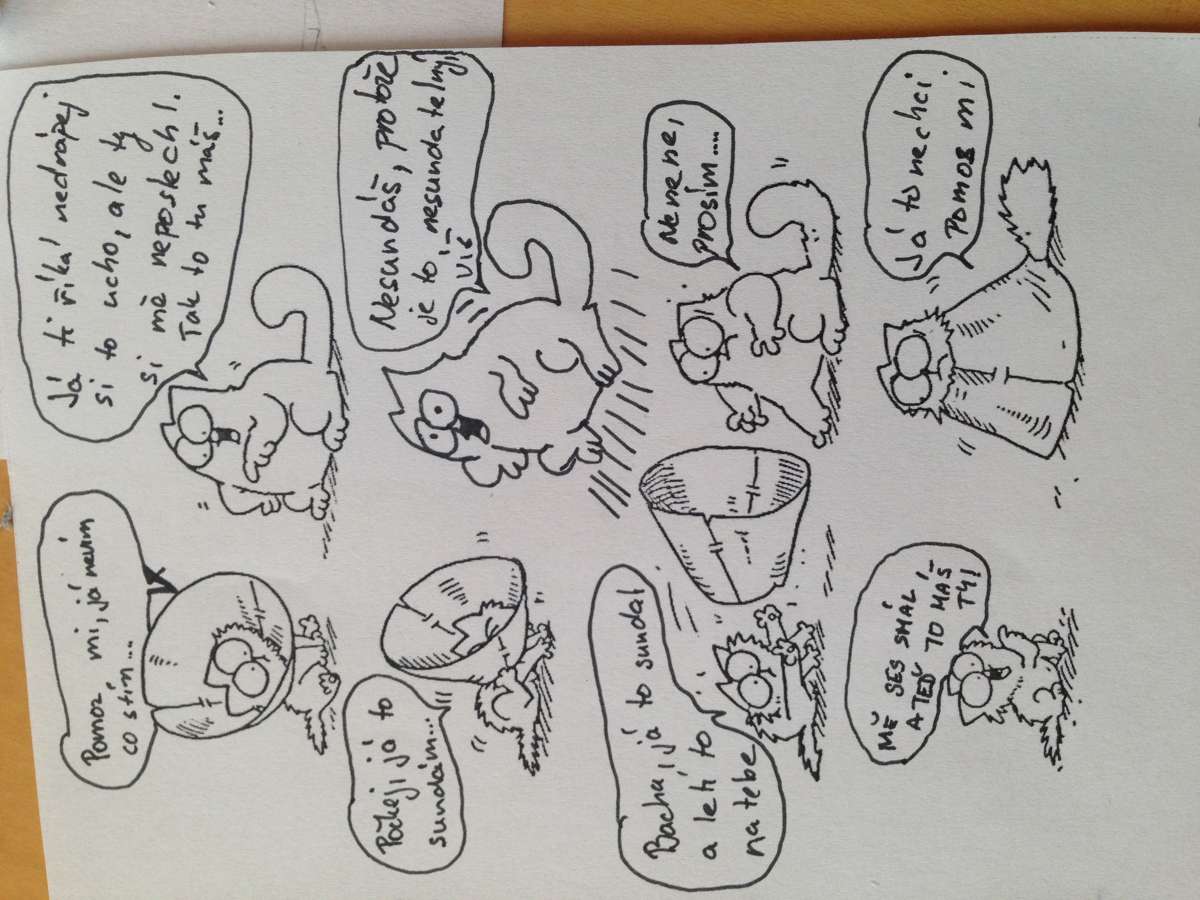 Pomoz mi, já nevím
co s tím...
Já ti říkal nedrápej
si to ucho, ale ty
si mě neposlechl.
Tak to tu máš...
Počkej, já to
sundám...
Nesundáš, protože
je to nesundatelný,
víš
Bacha, já to sundal
a letí to
na tebe
Nenene,
prosím....
MĚ SES SMÁL
A TEĎ TO MAŠ
TY!
Já to nechci.
POMOS MI.